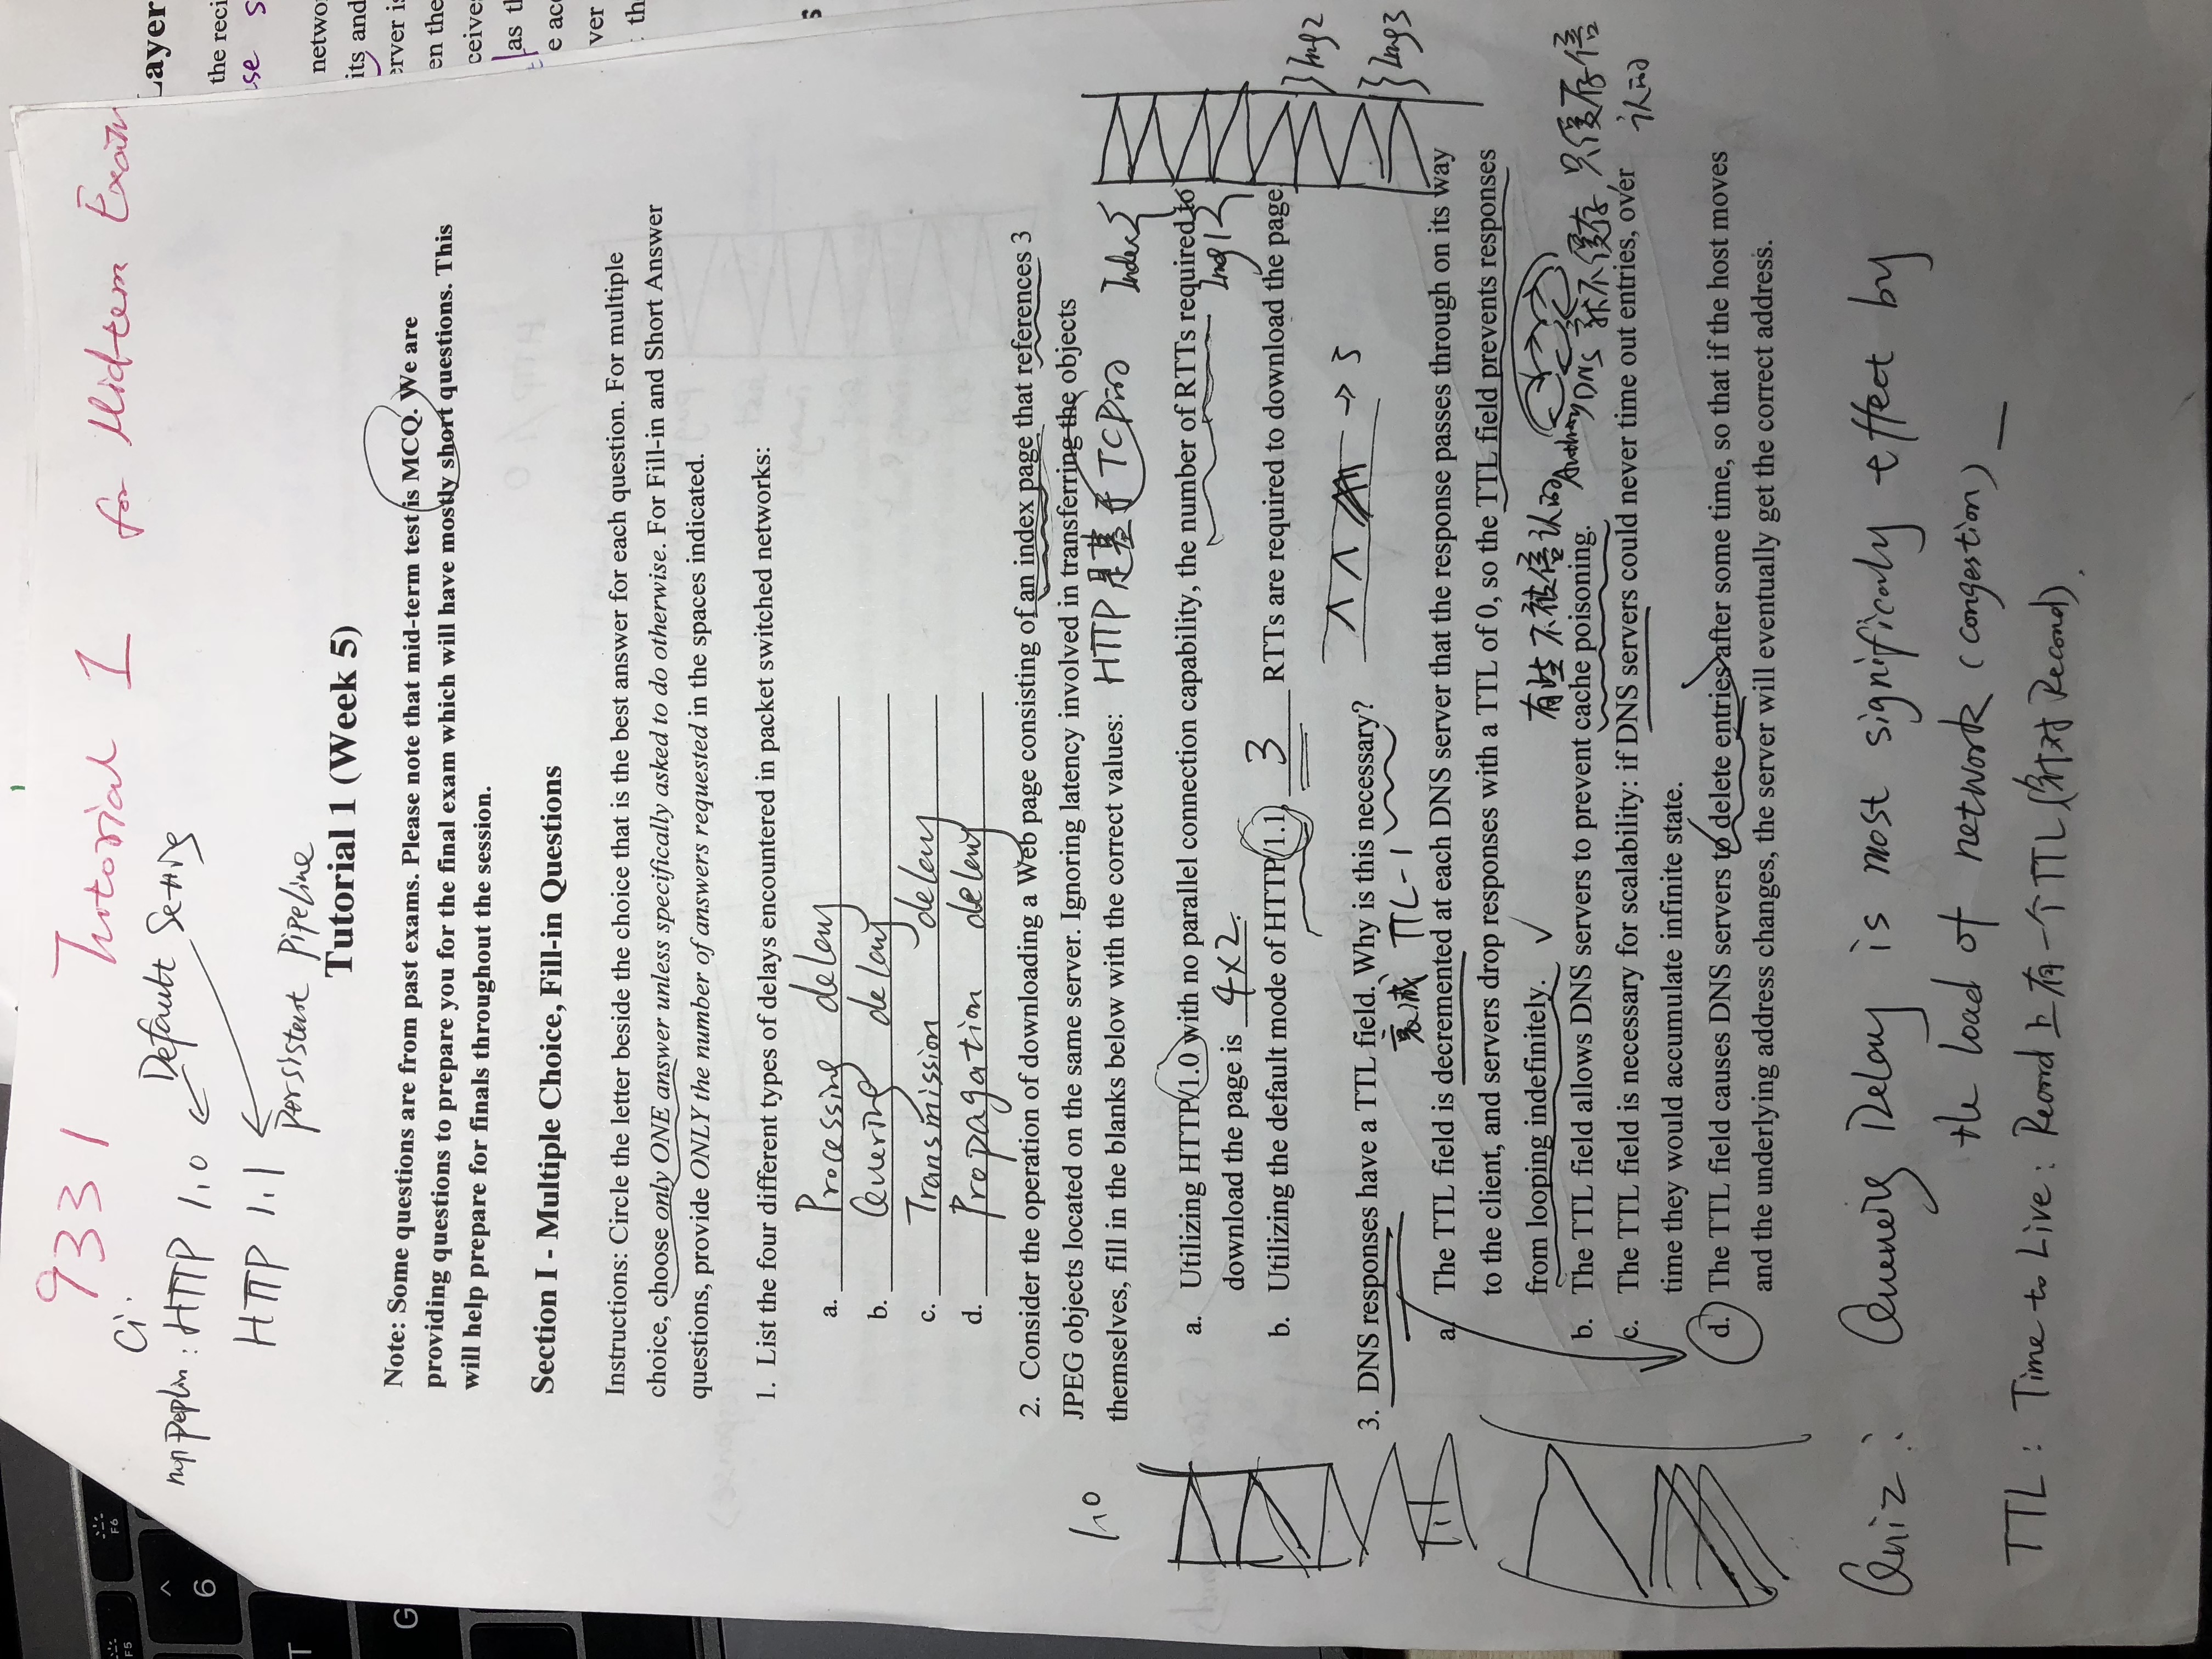 9331 Tutorial 1 for Midterm Exam
nonpeplin: HTTP 1.0 Default Setting
HTTP 1.1
persistent Pipeline
Tutorial 1 (Week 5)
Note: Some questions are from past exams. Please note that mid-term test is MCQ. We are
providing questions to prepare you for the final exam which will have mostly short questions. This
will help prepare for finals throughout the session.
Section I - Multiple Choice, Fill-in Questions
Instructions: Circle the letter beside the choice that is the best answer for each question. For multiple
choice, choose only ONE answer unless specifically asked to do otherwise. For Fill-in and Short Answer
questions, provide ONLY the number of answers requested in the spaces indicated.
1. List the four different types of delays encountered in packet switched networks:
a. Processing delay
b. Queuing delay
c. Transmission delay
d. Propagation delay
2. Consider the operation of downloading a Web page consisting of an index page that references 3
JPEG objects located on the same server. Ignoring latency involved in transferring the objects
themselves, fill in the blanks below with the correct values:
HTTP是基于TCP的
Index
Img1
Img2
Img3
1.0
a. Utilizing HTTP/1.0 with no parallel connection capability, the number of RTTs required to
download the page is 4×2.
b. Utilizing the default mode of HTTP/1.1, 3 RTTs are required to download the page
→ 3
1.1
3. DNS responses have a TTL field. Why is this necessary?
衰减 TTL-1
a. The TTL field is decremented at each DNS server that the response passes through on its way
to the client, and servers drop responses with a TTL of 0, so the TTL field prevents responses
from looping indefinitely. ✓
有些不被信认的
DNS 就不缓存 只缓存信
认的
b. The TTL field allows DNS servers to prevent cache poisoning.
c. The TTL field is necessary for scalability: if DNS servers could never time out entries, over
time they would accumulate infinite state.
d. The TTL field causes DNS servers to delete entries after some time, so that if the host moves
and the underlying address changes, the server will eventually get the correct address.
Quiz: Queueing Delay is most significantly effect by
the load of network (congestion)
TTL: Time to Live: Record上有一个TTL(针对Record).
Layer
the reci
use s
netwo
its and
erver is
en the
ceive
as t
e ac
ver
th
F5
F6
^
6
T
G